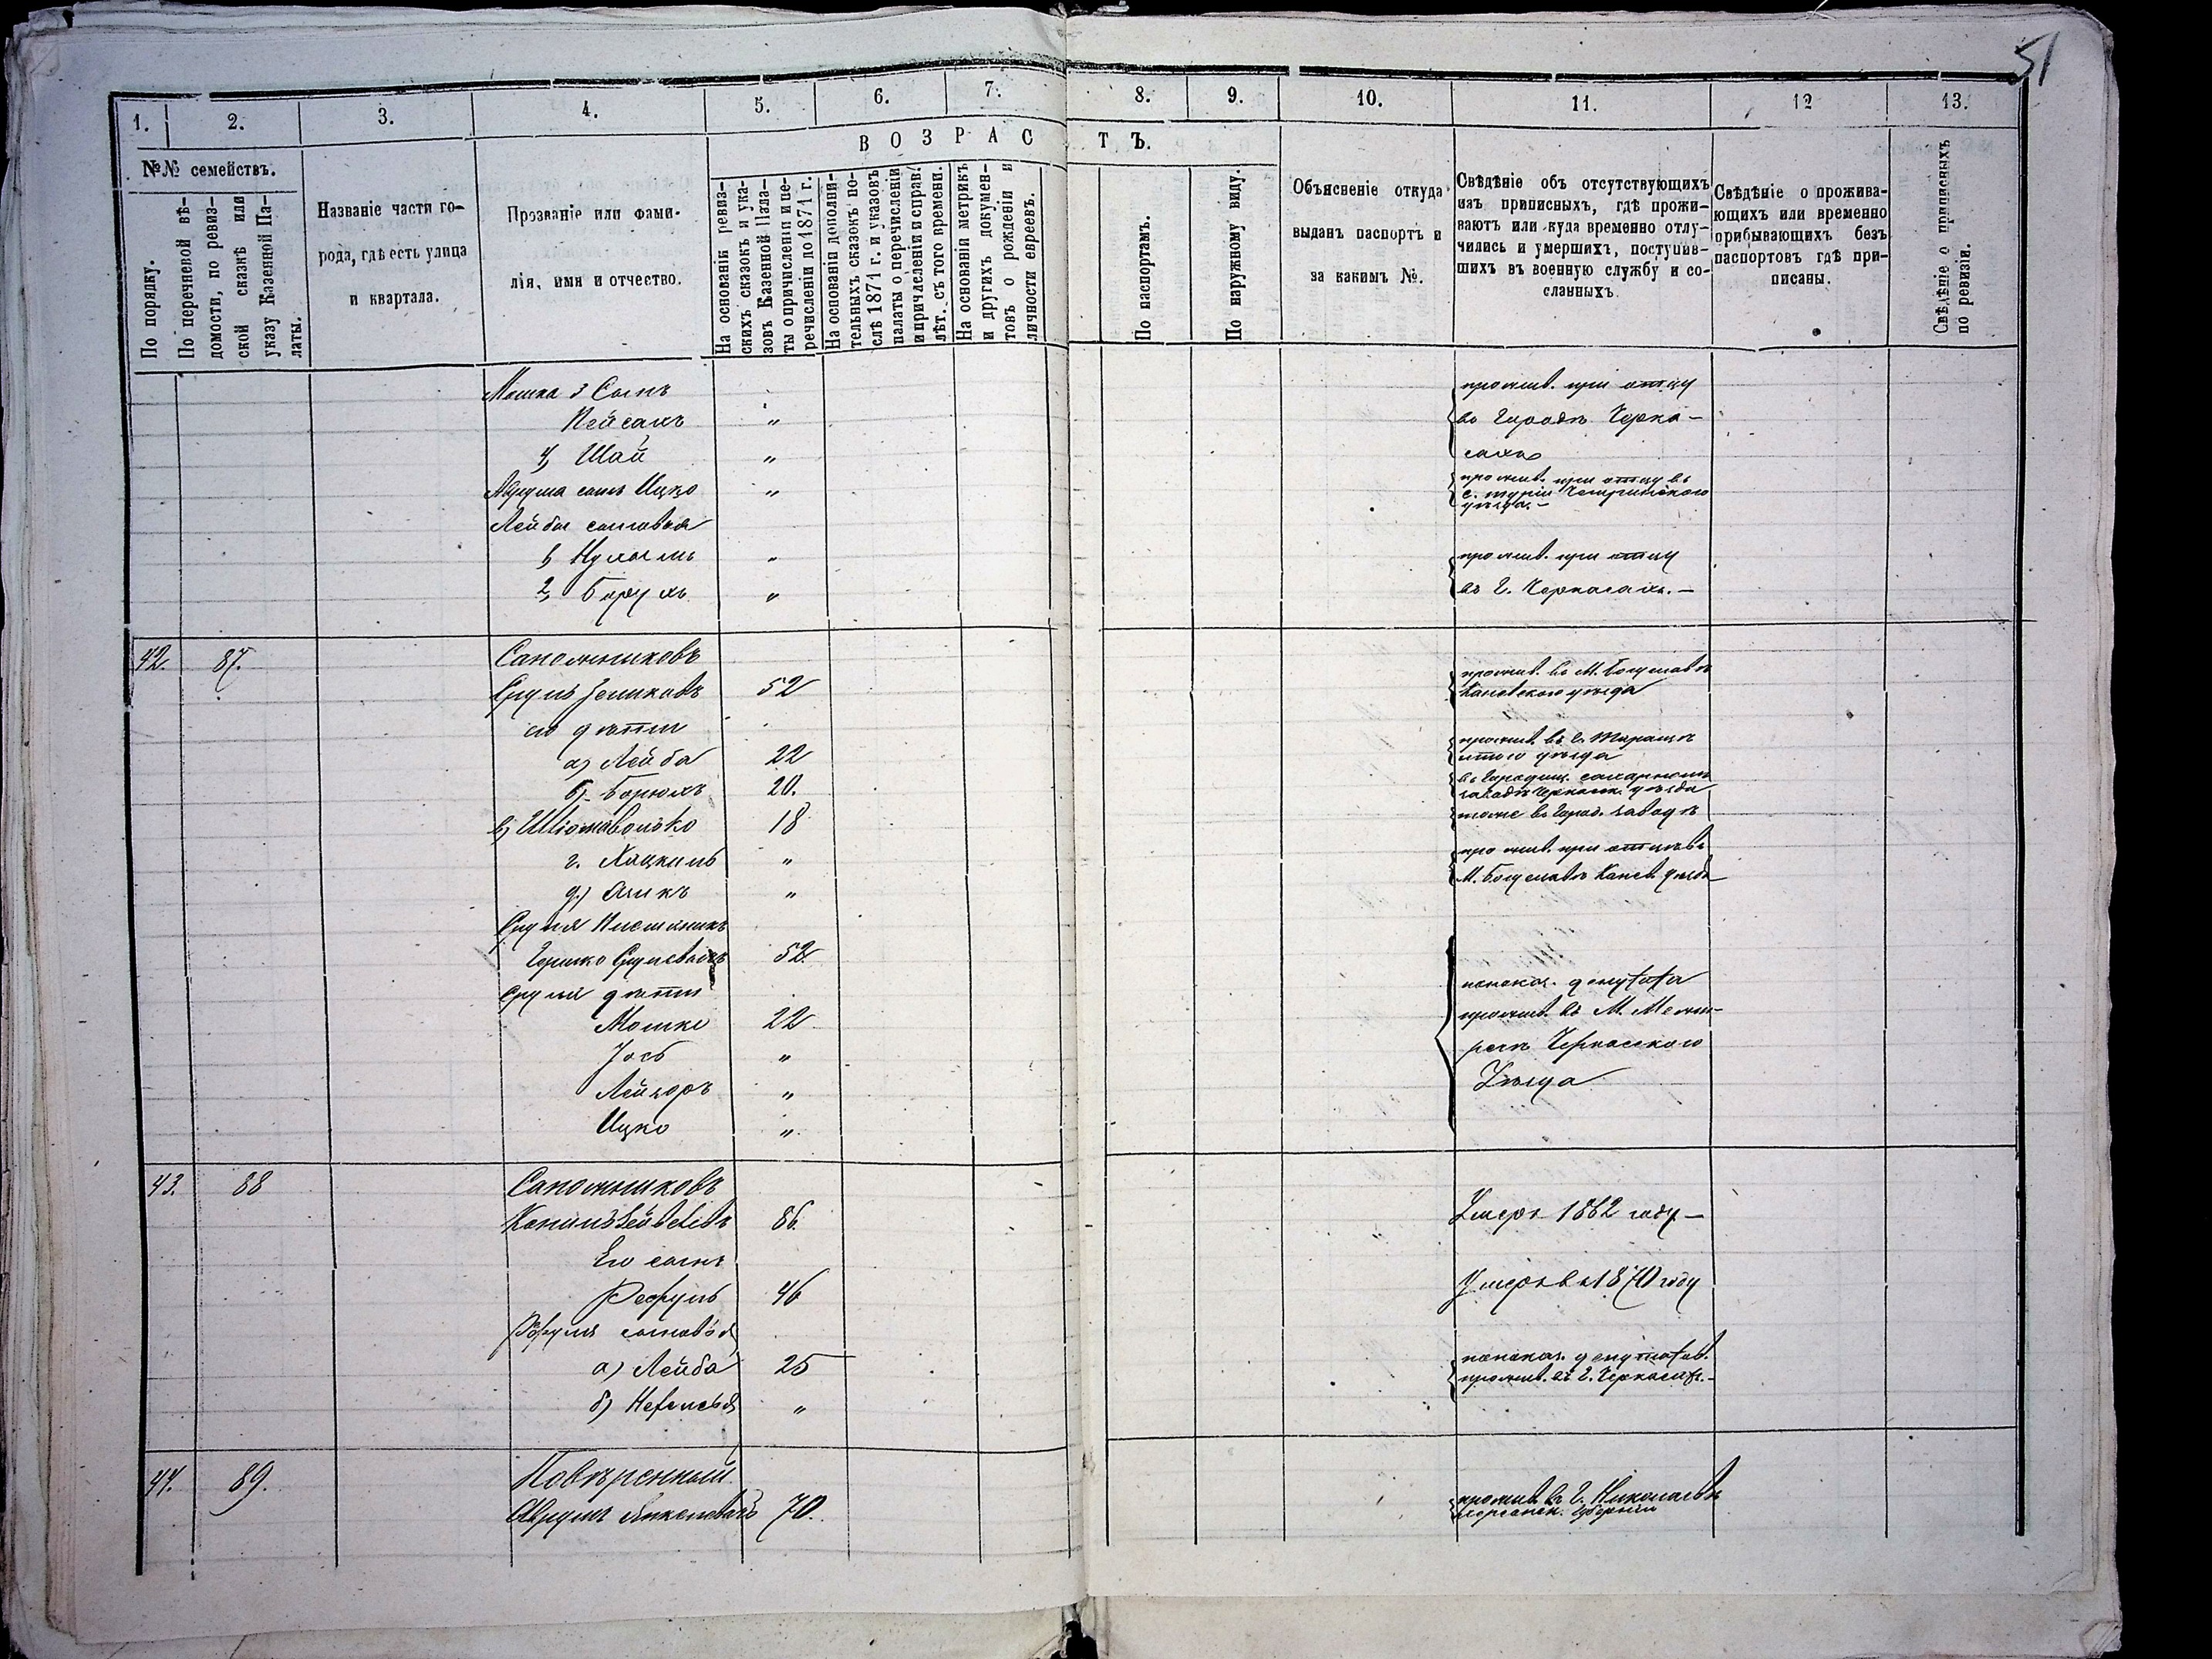 51
1. 2. 3. 4. 5. 6. 7. 8. 9. 10. 11. 12 13.
№№ семействъ.
По порядку.
По перечневой вѣ-
домости, по ревиз-
ской сказкѣ или
указу Казенной Па-
латы.
Названіе части го-
рода, гдѣ есть улица
и квартала.
Прозваніе или фами-
лія, имя и отчество.
ВОЗРАСТЪ.
На основаніи ревиз-
скихъ сказокъ и ука-
зовъ Казенной Пала-
ты о причисленіи и пе-
речисленіи до 1871 г.
На основаніи дополни-
тельныхъ сказокъ по-
слѣ 1871 г. и указовъ
палаты о перечисленіи
и причисленіи и справ.
лѣт. съ того времени.
На основаніи метрикъ
и другихъ докумен-
товъ о рожденіи и
личности евреевъ.
По паспортамъ.
По наружному виду.
Объясненіе откуда
выданъ паспортъ и
за какимъ №.
Свѣдѣніе объ отсутствующихъ
изъ приписныхъ, гдѣ прожи-
ваютъ или куда временно отлу-
чились и умершихъ, поступив-
шихъ въ военную службу и со-
сланныхъ.
Свѣдѣніе о прожива-
ющихъ или временно
прибывающихъ безъ
паспортовъ гдѣ при-
писаны.
Свѣдѣніе о приписныхъ
по ревизіи.
Мошка 3 Сынъ
прожив. при отцу
Пейсахъ "
въ городѣ Черка-
4, Шай "
сахъ
Аврума сынъ Ицко "
прожив. при отцу въ
с. Чигринского
уѣзда.-
Лейбы сыновья
1, Нухымъ "
прожив. при отцу
2, Борухъ "
въ г. Черкасахъ.-
42. 87. Сапожниковъ
Сруль Зельковъ 52
прожив. въ М. Богуславѣ
Каневского уѣзда
его дѣти
а) Лейба 22
прожив. въ г. Таращѣ
уѣзда
б) Борохъ 20.
въ Городищ. сахарномъ
заводѣ Черкаск. уѣзда
в) 18
тоже въ Город. заводѣ
г. Хацкиль "
прожив. при отцѣ въ
д.) Аликъ "
М. Богуславѣ Канев. уѣзда
Сруля
Гершко Срулевичъ 52
Сруля дѣти
показ. депутата
Мошко 22
прожив. въ М. Межи-
Іось "
речѣ Черкасского
Лейзоръ "
Уѣзда
Ицко "
43. 88 Сапожниковъ
86
Умеръ 1862 году-
Его сынъ
Рефуль 46
Умеръ въ 1870 году
Рефуля сыновья
а) Лейба 25
показ. депутатов.
прожив. въ г. Черкасах.-
б) "
44. 89. Повѣренный
Аврумъ Янкелевичъ 70.
прожив. въ г. Николаевѣ
Херсонск. губерніи